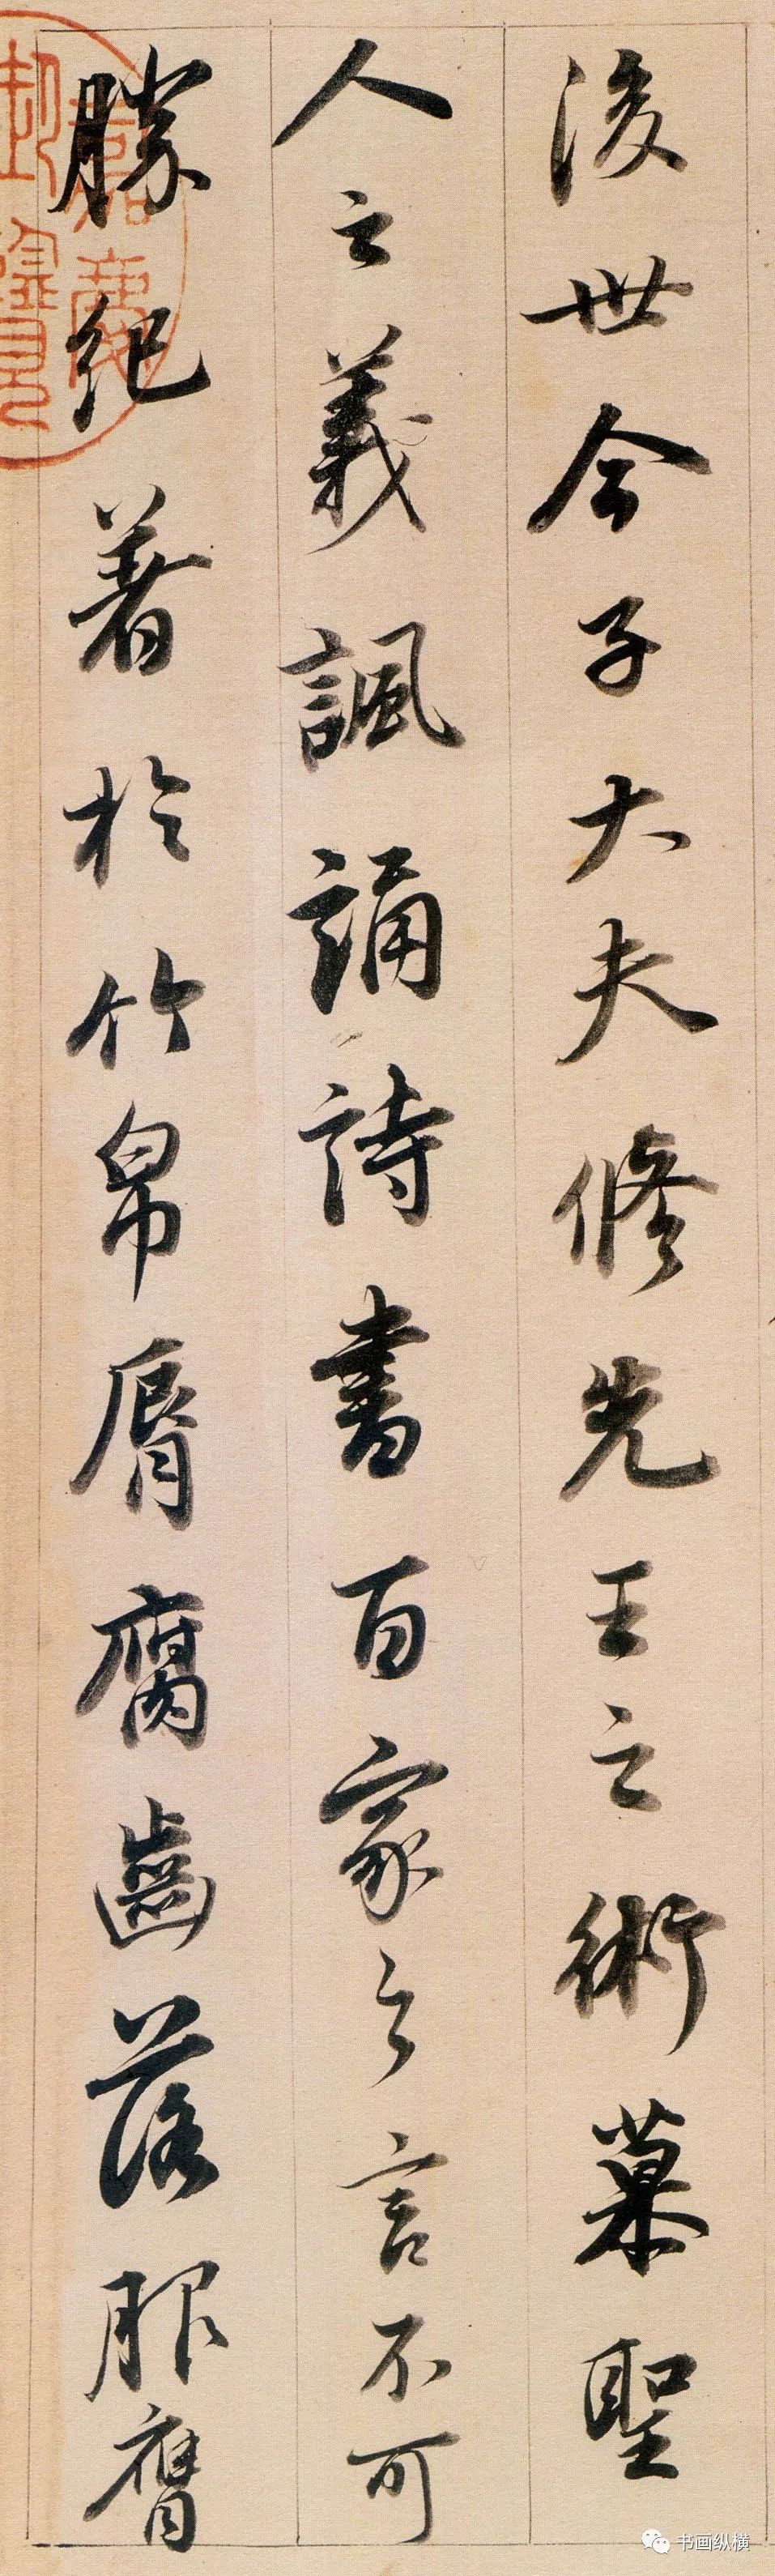 後世今子大夫修先王之術慕聖
人之義諷誦詩書百家之言不可
勝紀著於竹帛脣腐齒落服膺
嘉慶
书画纵横